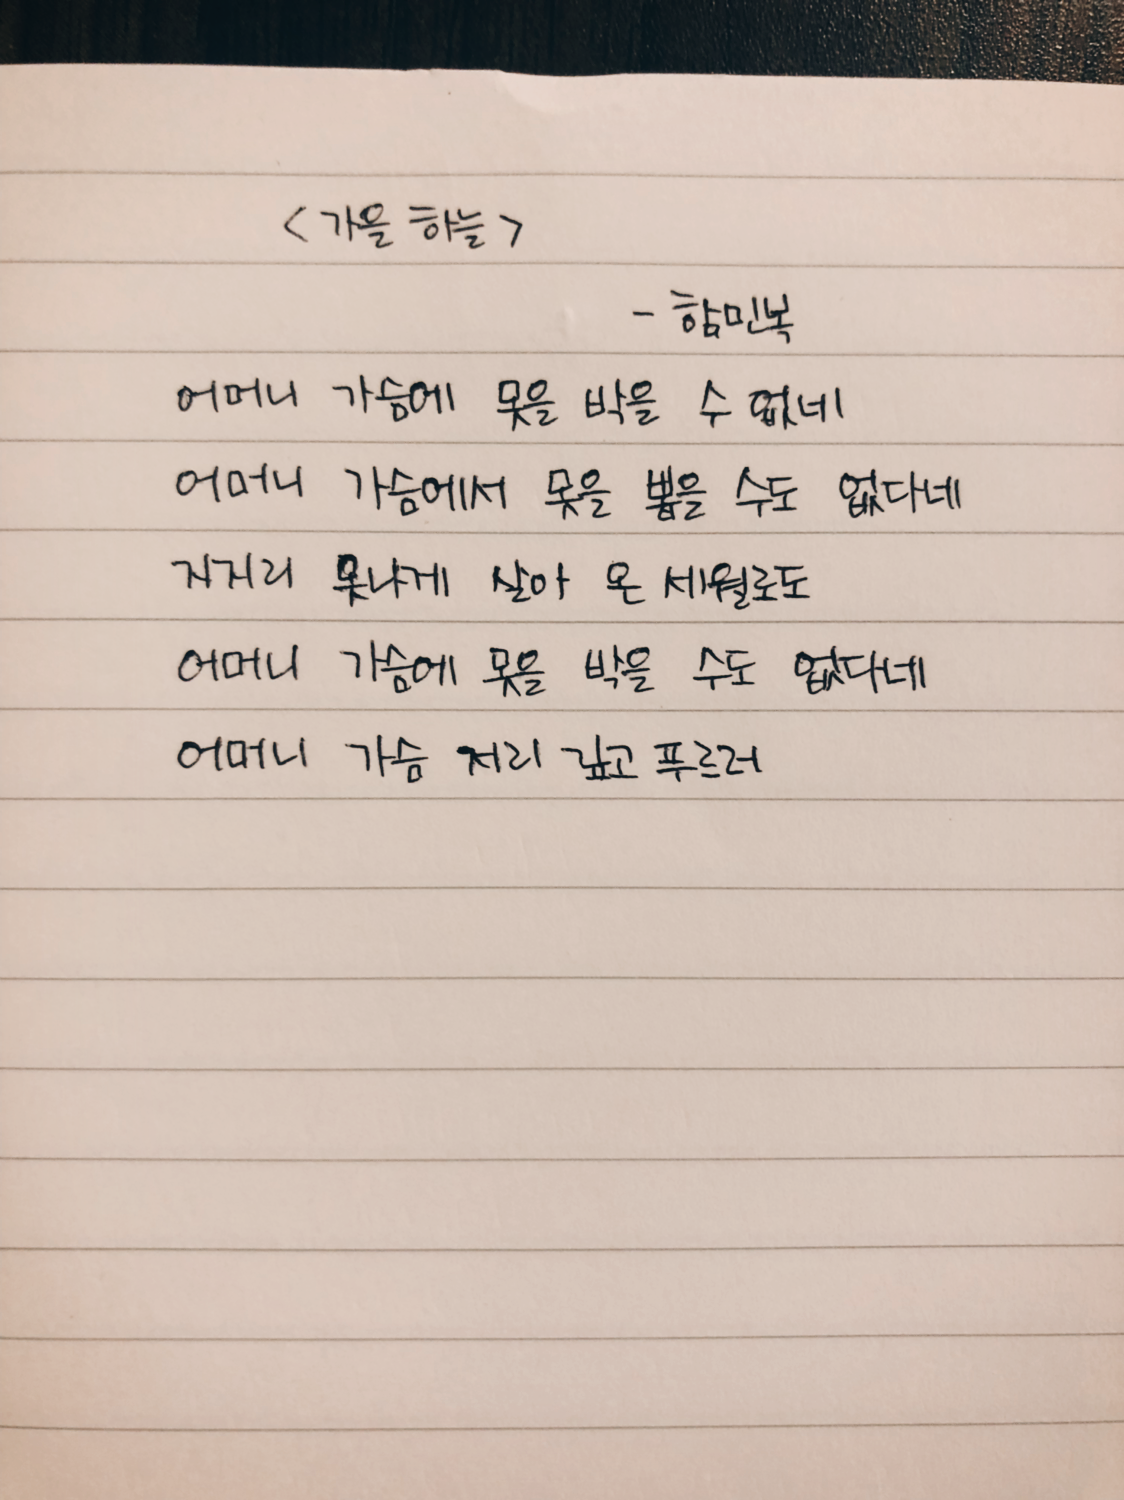 <가을 하늘>
- 함민복
어머니 가슴에 못을 박을 수 없네
어머니 가슴에서 못을 뽑을 수도 없다네
지지리 못나게 살아 온 세월로도
어머니 가슴에 못을 박을 수도 없다네
어머니 가슴 저리 깊고 푸르러